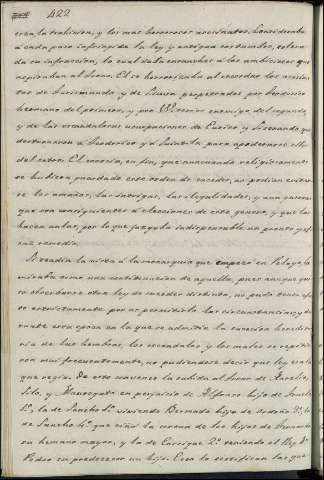 422
eran la trahicion, y los mas horrorosos asesinatos. Consideraba
á cada paso infringida la ley y antigua costumbre, estera
da su infraccion, lo cual daba ensanches á los ambiciosos que
aspiraban al trono. El se horrorizaba al recordar los asesina
tos de Turismundo y de Liuva perpetrados por
hermano del primero, y por Witerico enemigo del segundo,
y de las escandalosas usurpaciones de Eurico y Sisenando que
destronaron á Teodorico y á Suintila para apoderarse ellos
del cetro. El conocia, en fin, que aun cuando religiosamente
se hubiera guardado este orden de suceder, no podian evitar
se los amaños, las intrigas, las ilegalidades, y aun guerras
que son consiguientes á elecciones de este genero, y que las
hacen nulas, por lo que juzgaba indispensable un pronto y efi
caz remedio.
Si tendia la vista á la monarquia que empezó en Pelayo, la
miraba como una continuacion de aquella, pues aunque qui
so observarse otra ley de suceder distinta, no pudo tener efec
to estrictamente por no permitirlo las circunstancias, y du
rante esta epoca en la que se admitia la sucesion heredita
ria de las hembras, los escandalos y los males se repitie
ron muy frecuentemente, no pudiendose decir que ley era la
que regia. De este caracter la subida al trono de Aurelio,
Silo, y Mauregato en perjuicio de Alfonso hijo de Fruela
1º, la de Sancho 1º viviendo Bermudo hijo de Ordoño 3º, la
de Sancho 4º que ciñó la corona de los hijos de Fernando
su hermano mayor, y la de Enrique 2º teniendo el Rey Dn
Pedro su predecesor un hijo. Esto lo certifican las que